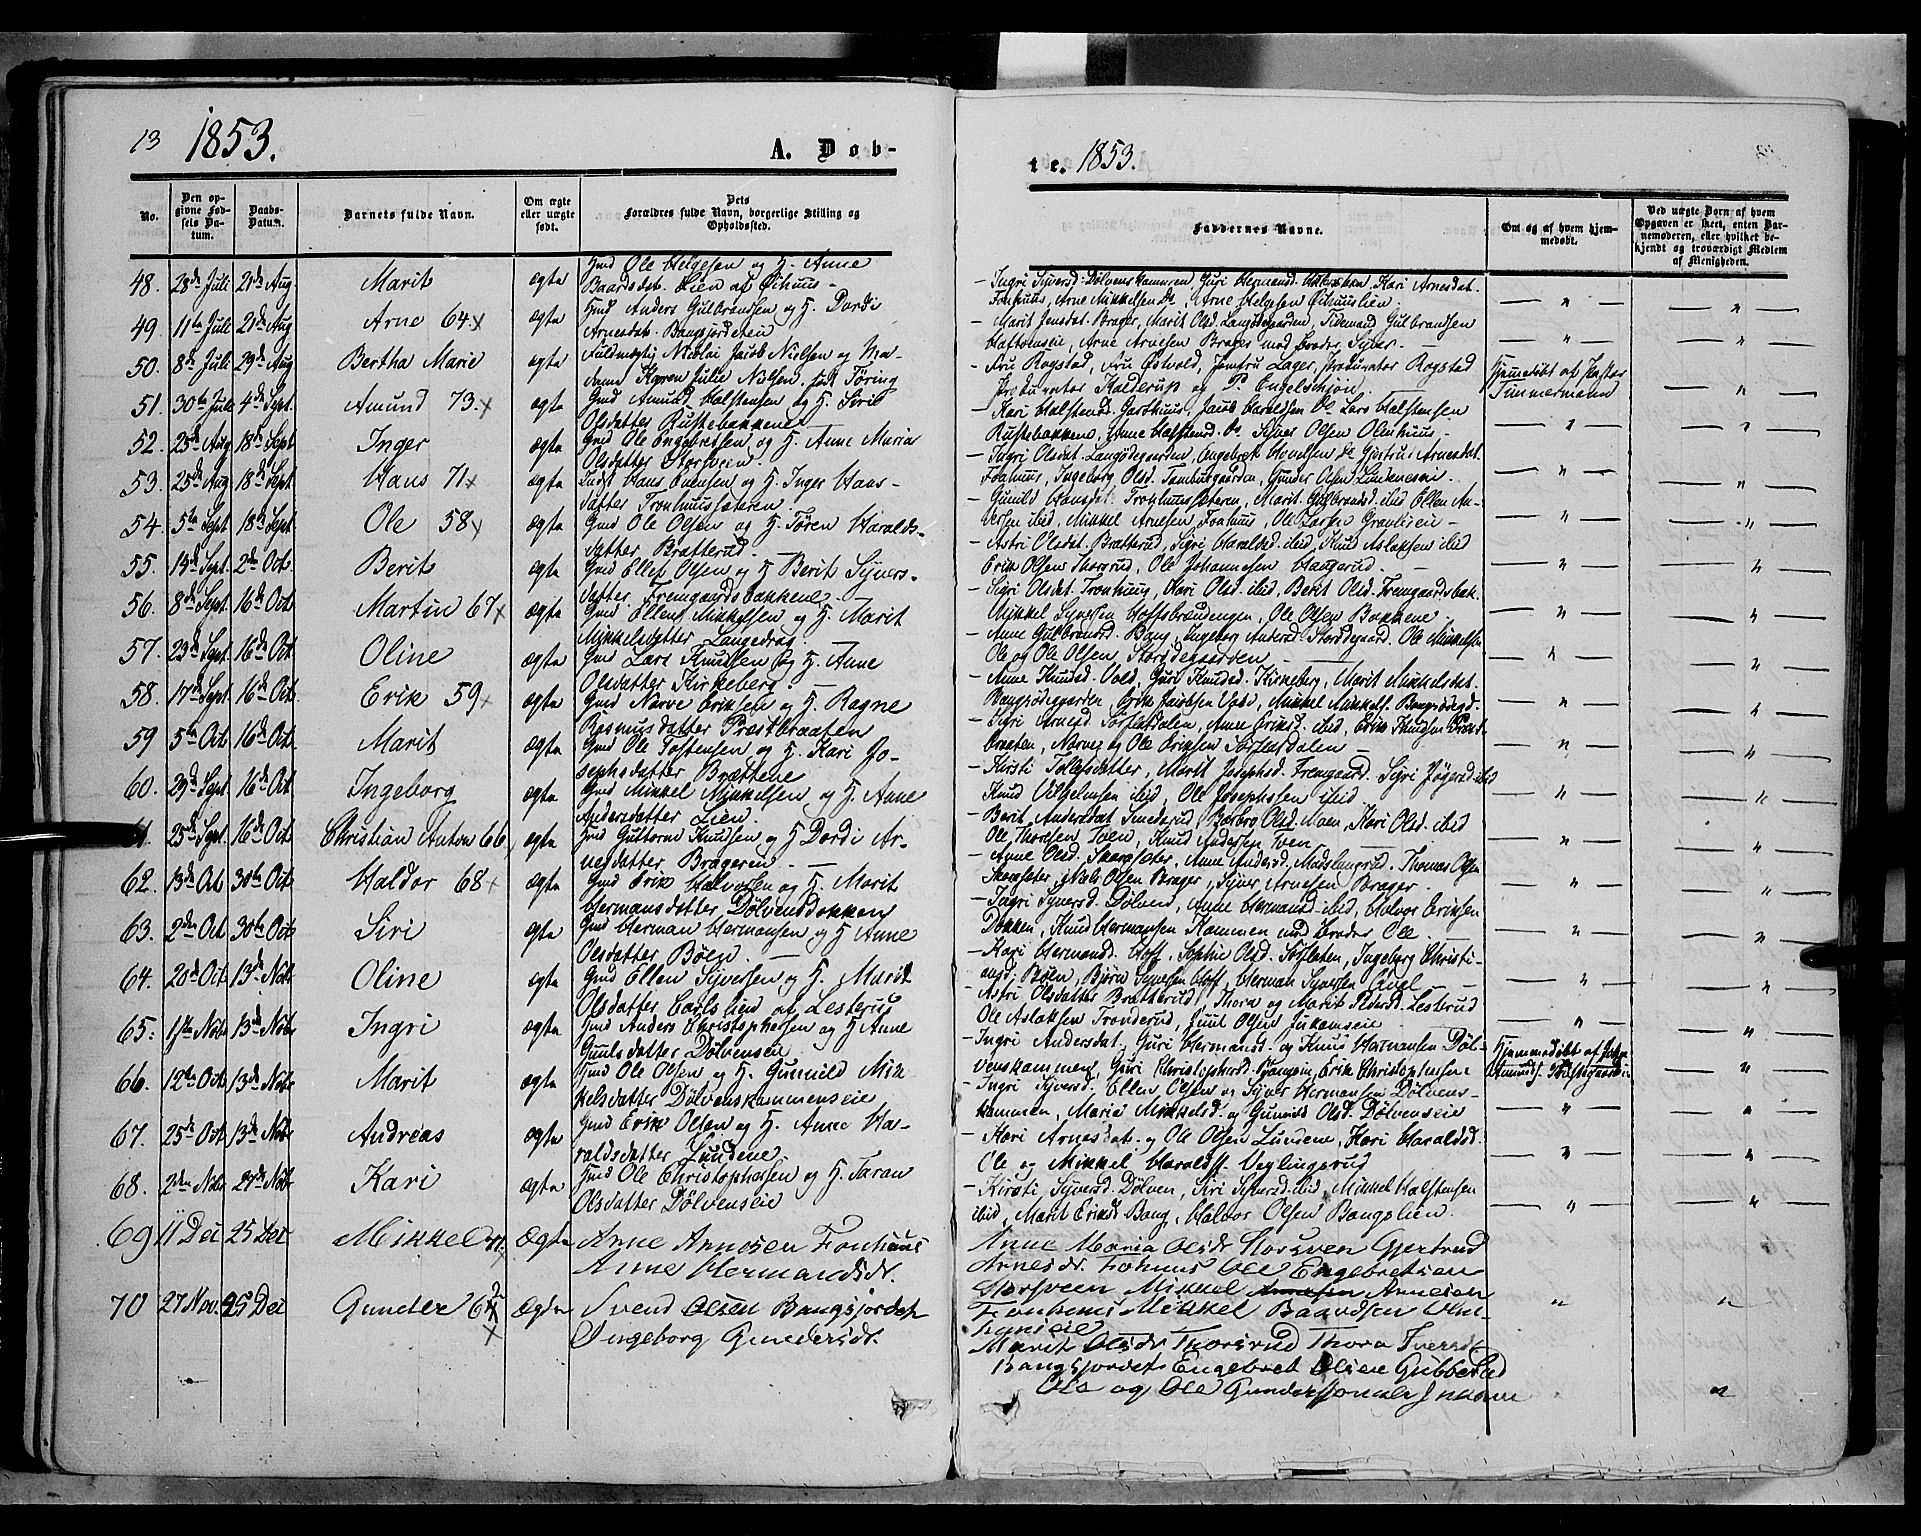 13 1853. A. Døb-
No.
Den opgivne Fødsels Datum.
Daabs-Datum.
Barnets fulde Navn.
Om ægte eller uægte født.
Dets Forældres fulde Navn, borgerlige Stilling og Opholdssted.
48. 28de Juli 21de Aug Marit ægte Hmd Ole Helgesen og H. Anne
Baardsdat. Lien af Øihuus
49. 11te Juli 21de Aug Arne 64 x ægte Hmd Anders Gulbrandsen og H. Dordi
Arnesdat. Bangjordeteien
50. 8de Juli 29de Aug Bertha Marie ægte Fuldmægtig Nicolai Jacob Nielsen og Ma-
dame Karen Julie Nielsen født Føring
51. 30te Juli 4de Sept. Amund 73. x ægte Gmd Amund Halstensen og H. Siri
Olsdatter Rustebakkene
52. 25de Aug 18de Sept Inger ægte Gmd Ole Engebretsen og H. Anne Maria
Olsdatter Storsveen.
53. 25de Aug 18de Sept Hans 71 x ægte Indst Hans Evensen og H. Inger Hans-
datter Tronhuussæteren.
54. 5te Sept. 18de Sept Ole 58 x ægte Gmd Ole Olsen og H. Tören Haralds-
datter Bratterud.
55. 13de Sept. 2de Oct Berit ægte Gmd Ellef Olsen og H Berit Syvers-
datter Fremgaardsbakkene
56. 8de Sept. 16de Oct Martin 67 x ægte Gmd Ellens Mikkelsen og H. Marit
Mikkelsdatter Langedrag
57. 23de Sept. 16de Oct Oline ægte Gmd Lars Knudsen og H. Anne
Olsdatter Kirkeberg.
58. 17de Sept. 16de Oct Erik 59 x ægte Gmd Narve Eriksen og H. Ragne
Rasmusdatter Præstbraaten
59 5te Oct 16de Oct Marit ægte Gmd Ole Tostensen og H. Kari Jo-
sephsdatter Brættene
60. 29de Sept. 16de Oct Ingeborg ægte Gmd Mikkel Mikkelsen og H. Anne
Andersdatter Lien.
61 25de Sept. 16de Oct Christian Anton 66 ægte Hmd Guttorm Knudsen og H Dordi Ar-
nesdatter Brageren.
62. 13de Oct 30te Oct Haldor 68 x ægte Gmd Erik Halvorsen og H. Marit
Hermansdatter Dölvenddokken
63. 2den Oct 30te Oct Siri ægte Gmd Herman Hermansen og H. Anne
Olsdatter Böen.
64. 20de Oct 13de Nov. Oline ægte Gmd Ellen Syversen og H. Marit
Olsdatter Carlslien af Lesterud
65. 1ste Nobr 13de Nobr Ingri ægte Hmd Anders Christophersen og H Anne
Guulsdatter Dölvenseie
66. 12te Oct 13de Nobr Marit ægte Hmd Ole Olsen og H. Gunnild Mik-
kelsdatter Dölvenskammenseie
67. 25de Oct 13de Nobr Andreas ægte Gmd Erik Olsen og H. Anne Ha-
raldsdatter Lundene
68. 2den Nobr 27de Nobr Kari ægte Hmd Ole Christophersen og H. Taran
Olsdatter Dölvenseie
69 11 Dec 25 Dec Mikkel Ægte Arne Arnesen Fonhuus
Anne Hermandsdr.
70 27 Nov. 25 Dec Gunder 62 x Ægte Svend Olsen Bangsjordet
Ingeborg Gundersdr.
te. 1853.
Faddernes Navne.
Om og af hvem hjemmedøbt.
Ved uægte Børn af hvem Opgaven er skeet, enten Barnemoderen, eller hvilket bekjendt og troværdigt Medlem af Menigheden.
- Ingri Syversd. Dölvenskammen, Guri Hermansd. Kari Arnesdat.
Fonhuus, Arne Mikkelsen Do, Arne Helgesen Øihuuslien
- Marit Jensdat. Brager, Marit Olsd. Langödegaarden, Tidemand Gulbrandsen
Arne Arnesen Brager med Broder Syver
- Fru Rogstad, Fru Østvold, Jomfru Lager, Procurator Rogstad
Procurator Kalderup og P Engelschiøn Hjemmedöbt af Pastor Timmermann
- Kari Halstensd. Garthuus, Jacob Haraldsen Do Lars Halstensen
Rustebakkene, Anne Halstensd. Do Syver Olsen Olmhuus
- Ingri Olsdat. Langödegaarden, Engebrecht Do Gjertrud Arnesdat.
Fonhuus, Ingeborg Olsd. Gunder Olsen
- Gunild Hansdat. Tronhuussæteren, Marit Gulbrandsd. ibid Ellen An-
dersen ibid, Mikkel Arnesen Fonhuus, Ole Larsen
- Astri Olsdat. Bratterud, Sigri Haraldsd. ibid, Knud Aslaksen ibid
Erik Olsen Thorsrud, Ole Johannesen Haugerud.
- Sigri Olsdat. Tronhuus, Kari Olsd. ibid, Berit Olsd. Fremgaardsbak.
Mikkel Syversen Hoffsbraadengen, Ole Olsen Bakkene
- Anne Gulbrandsd. Bang, Ingeborg Andersd. Storödegaard. Ole Mikkelsen
Ole og Ole Olsen Storödegaarden
- Anne Knudsd. Vold, Guri Knudsd. Kirkeberg, Marit Mikkelsdat.
Bangsödegaarden, Erik Jacobsen Vold, Mikkel Mikkels.
- Sigri Arnesd. Anne Eriksd. ibid, Erik Knudsen Præst-
braaten, Narve og Ole Eriksen
- Kirsti Tollefsdatter, Marit Josephsd. Fremgaard. Sigri ibid
Knud Vilhelmsen ibid, Ole Josephssen ibid
- Berit Andersdat. Smederud, Barbro Olsd. Moen, Kari Olsd. ibid
Ole Thoresen Toen, Knud Andersen Toen
- Anne Olsd. Anne Andersd. Thomas Olsen
Niels Olsen Brager, Syver Arnesen Brager.
- Ingri Syversd. Dölven, Anne Hermansd ibid, Halvor Eriksen
Dokken, Knud Hermansen Kammen med Broder Ole
- Kari Hermansd. Hoff, Sophie Olsd. Ingeborg Christi-
ansd. Böen, Björn Syversen Hoff, Herman Syversen
- Astri Olsdatter Bratterud, Thora og Marit Pedersd. Lesterud
Ole Aslaksen Tronderud, Juul Olsen
- Ingri Andersdat., Guri Hermansd. og Knud Hermansen Döl-
venskammen, Guri Christophersd. Erik Christophersen Hjemmedöbt af
- Ingri Syversd. Ellen Olsen og Syver Hermansen Dölvens-
kammen, Maria Mikkelsd. og Gunild Olsd. Dölvenseie
- Kari Arnesdat. og Ole Olsen Lundene, Kari Haraldsd.
Ole og Mikkel Haralds.
- Kirsti Syversd. Dölven, Siri Syversd. ibid, Mikkel Halstensen
ibid, Marit Eriksd. Bang, Halvor Olsen Bangslien.
Anne Maria Olsdr Storsveen Gjertrud
Arnesdr. Fonhuus Ole Engebretsen
Storsveen Mikkel Arnesen
Fonhuus Mikkel Baardsen
Marit Olsdr Thorsrud Thora
Bangsjordet Engebret Olsen Gubberud
Ole og Ole